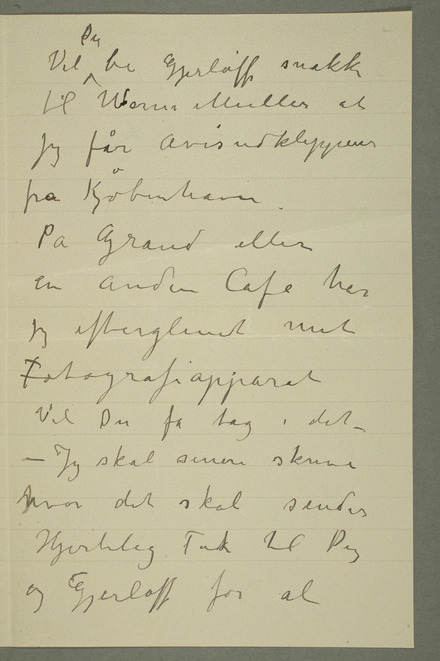 Du
Vil be Gjerløff snakke
til Worm Müller at
jeg får avisudklippene
fra Kjøbenhavn.
På Grand eller
en anden Cafe har
jeg efterglemt mit
Fotografiapparat
Vil Du få tag i det –
– Jeg skal senere skrive
hvor det skal sendes
Hjertelig Tak til Dig
og Gjerløff for al